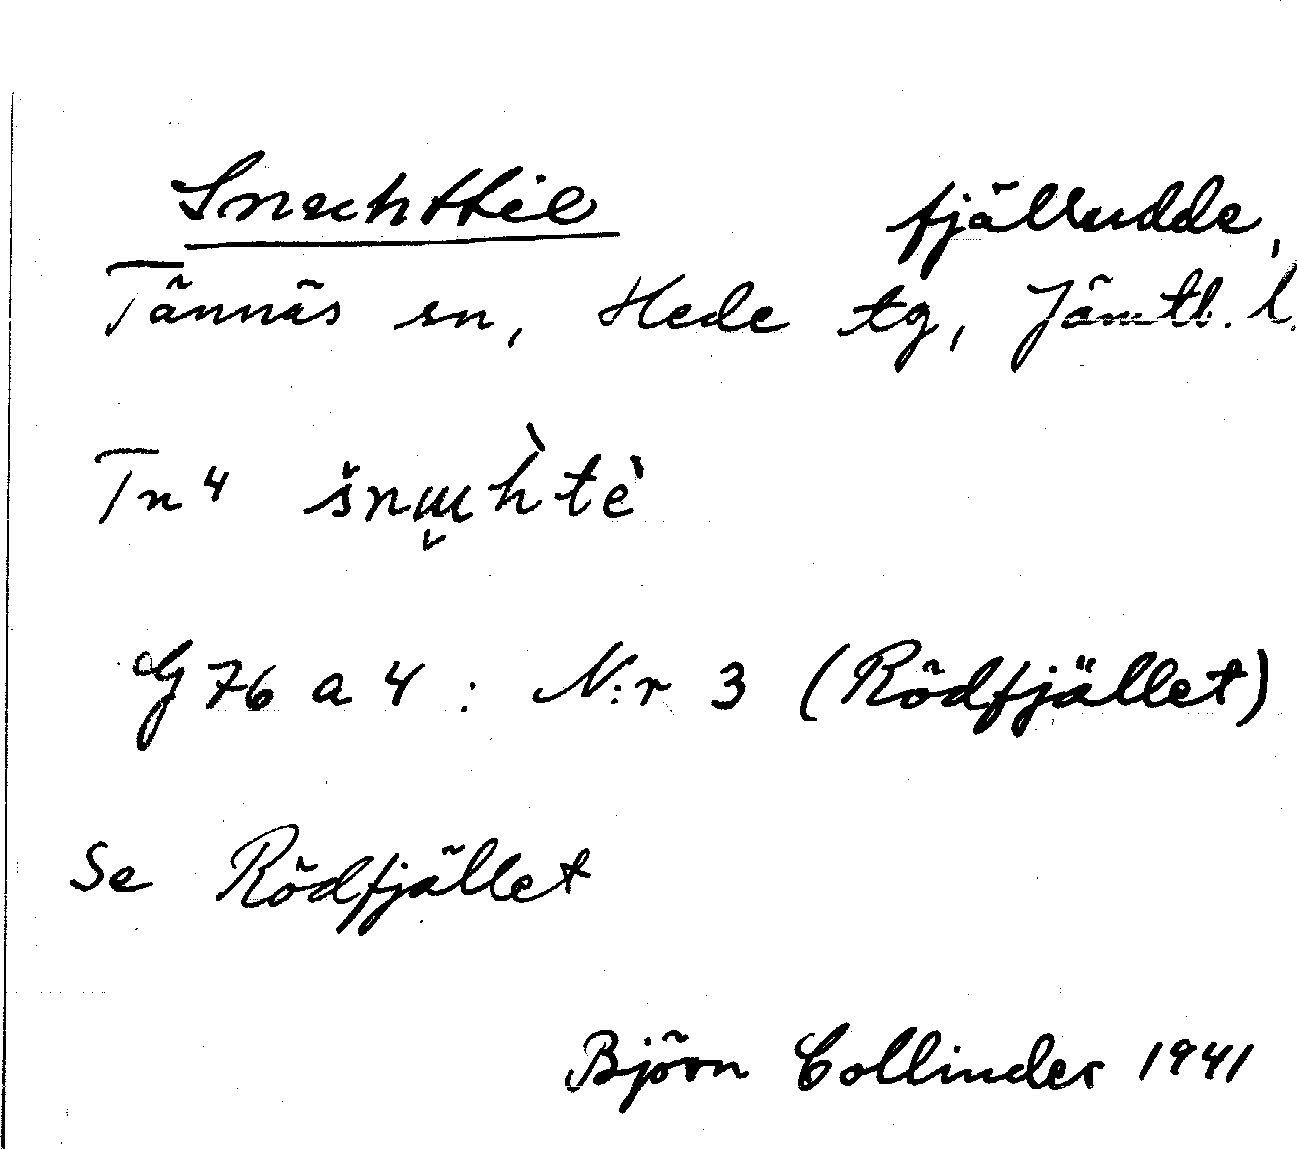 Snuchttie fjälludde,
Tännäs sn, Hede tg, Jämtl. l.
Tn⁴ šnɯ̬h̀tè
G 76 a 4 : N:r 3 (Rödfjället)
Se Rödfjället
Björn Collinder 1941